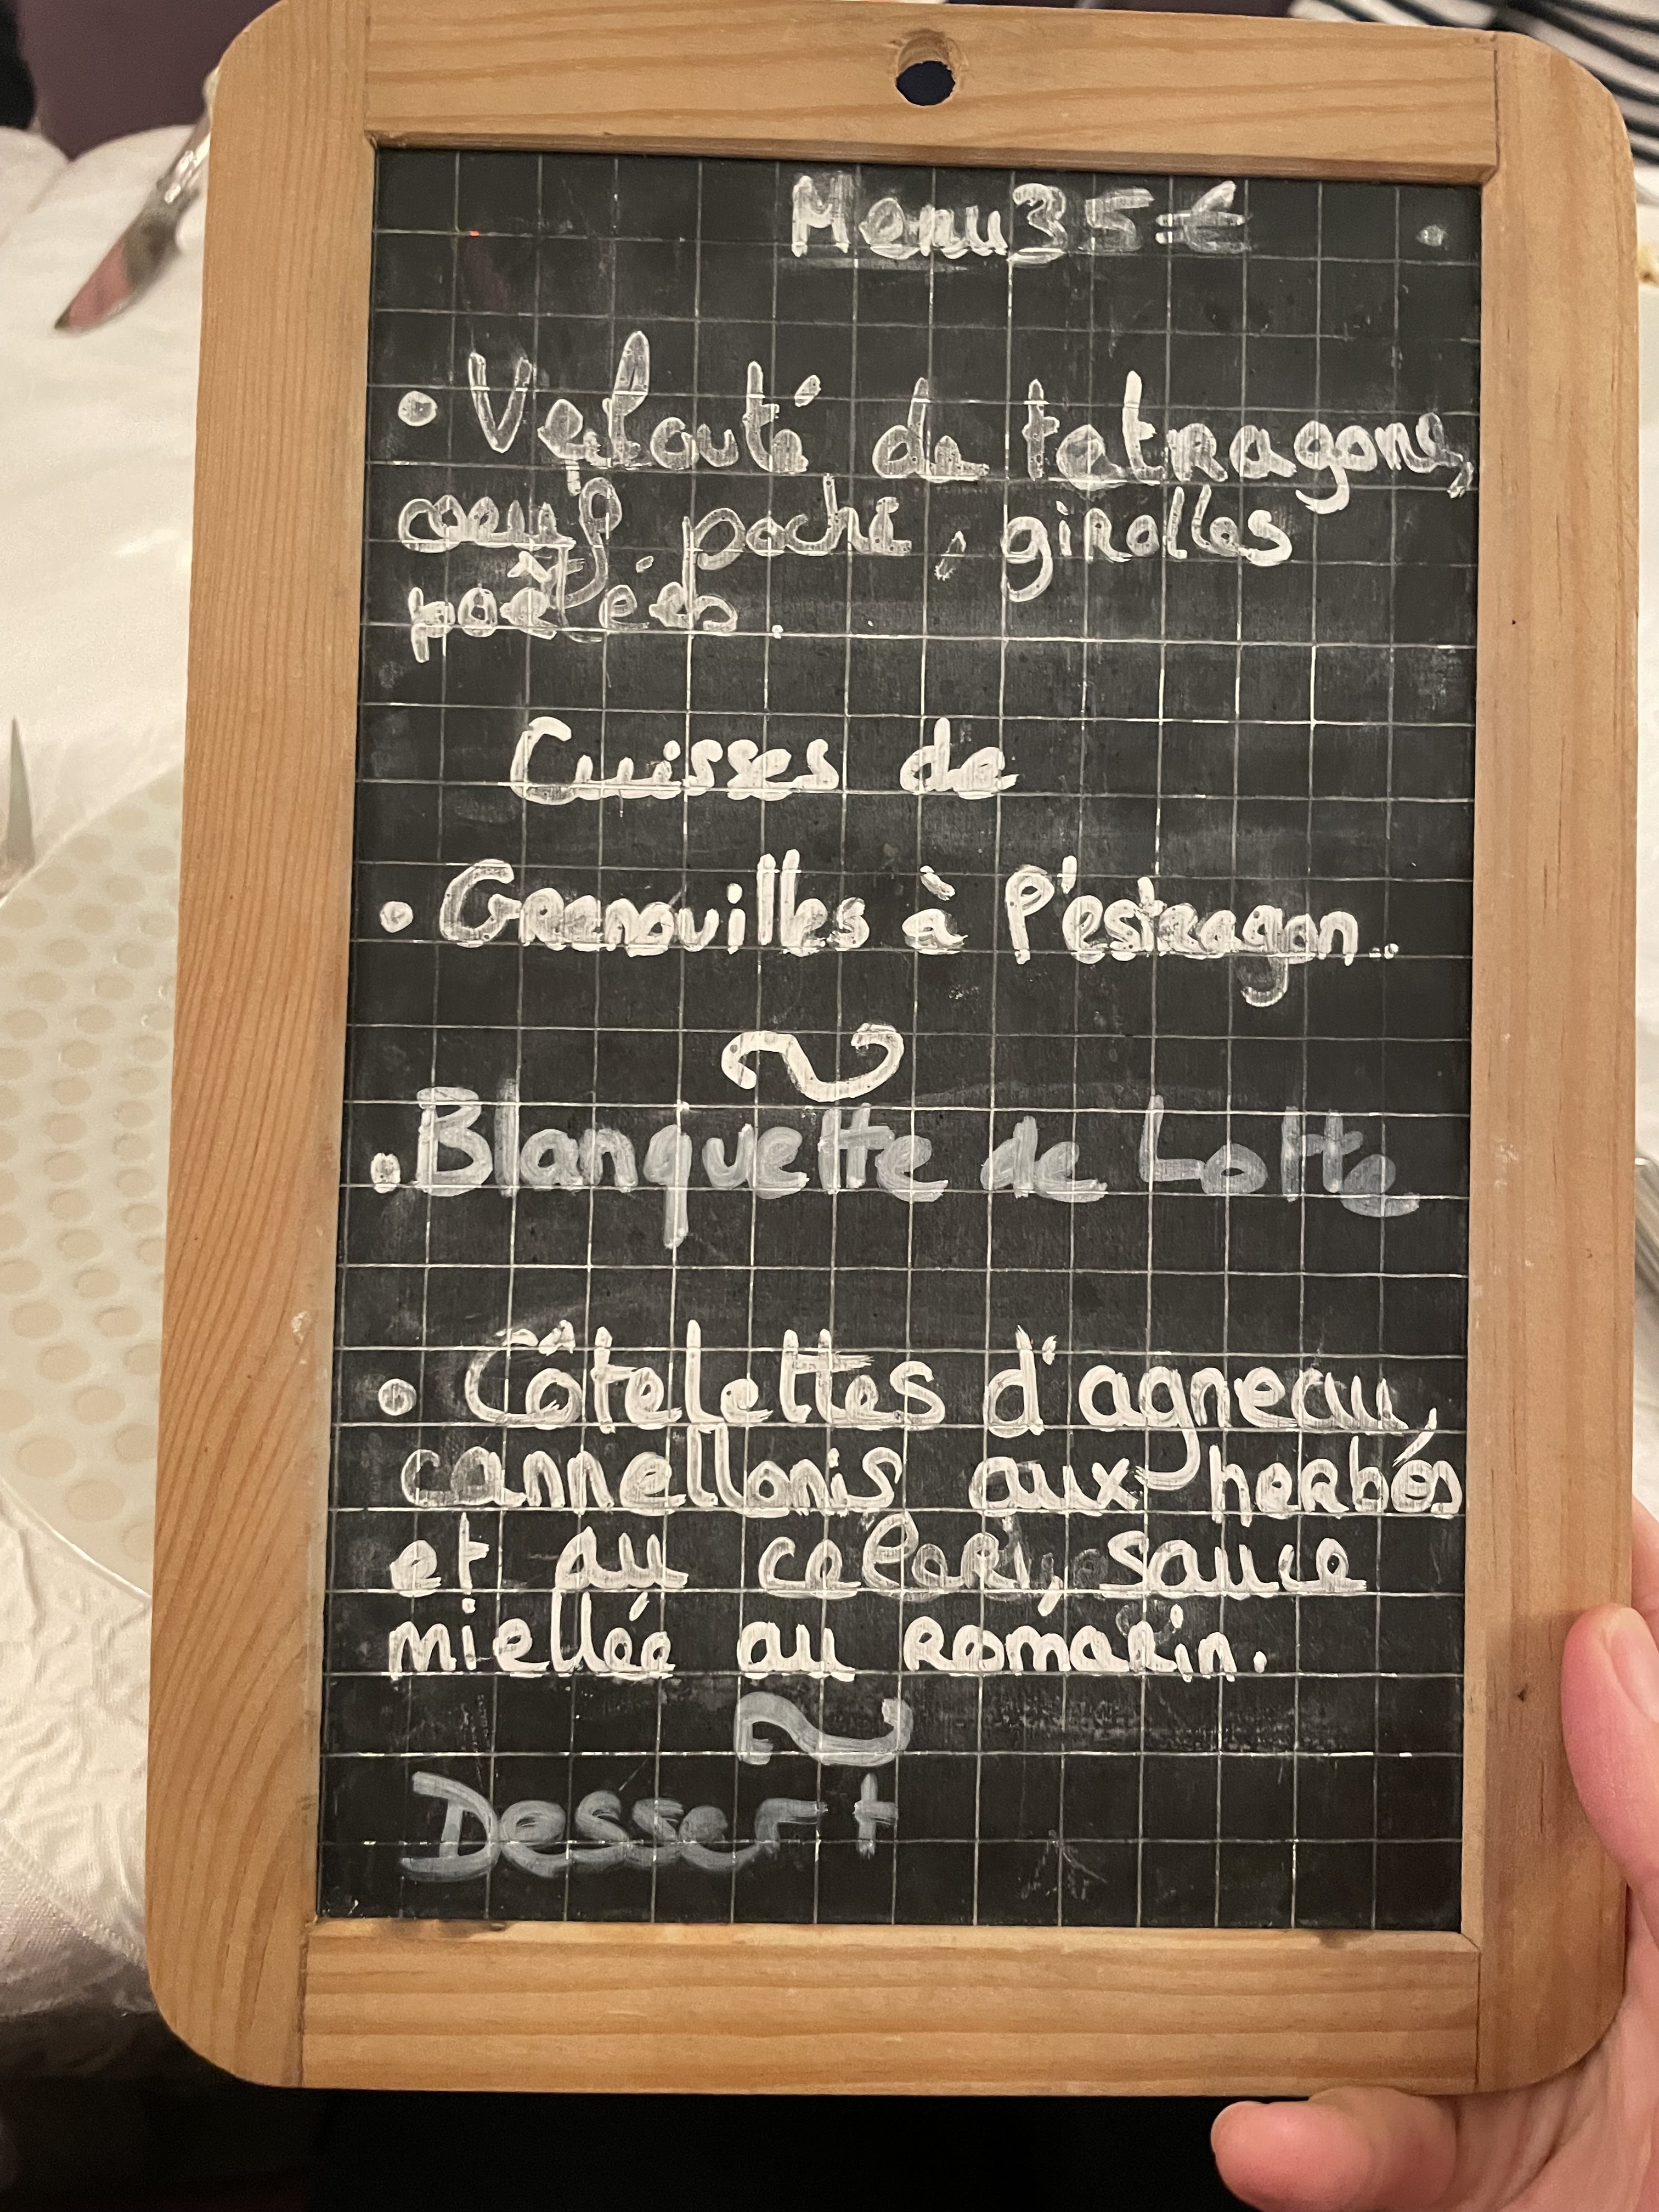 Menu 35 €
• Velouté de tetragone,
oeuf poché, girolles
poêlées.
Cuisses de
• Grenouilles à l'estragon..
~
• Blanquette de Lotte
• Côtelettes d'agneau,
cannellonis aux herbes
et au celeri, sauce
miellée au romarin.
~
Dessert